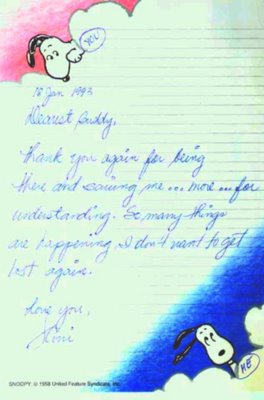 YOU
18 Jan 1993
Dearest Buddy,
Thank you again for being
there and saving me... more... for
understanding. So many things
are happening, I don't want to get
lost again.
Love you,
ME
SNOOPY: © 1958 United Feature Syndicate, Inc.